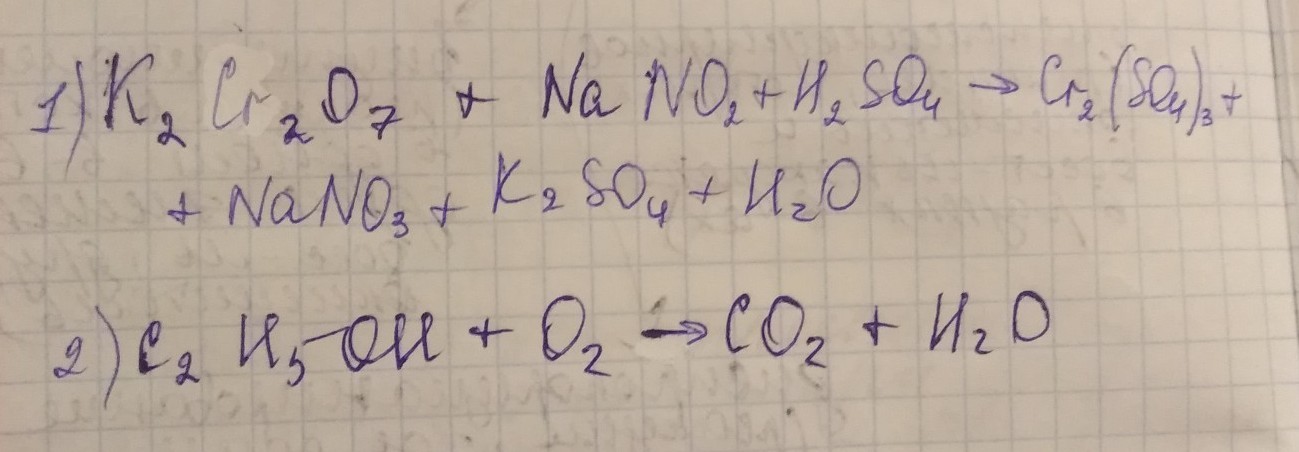 1) K₂Cr₂O₇ + NaNO₂ + H₂SO₄ → Cr₂(SO₄)₃ +
+ NaNO₃ + K₂SO₄ + H₂O
2) C₂H₅-OH + O₂ → CO₂ + H₂O